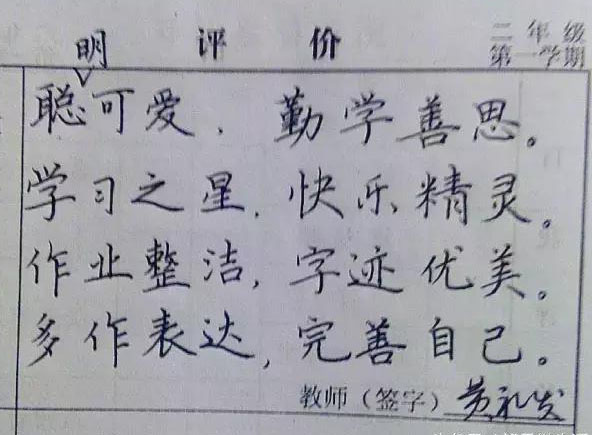 评 价
二年级
第一学期
聪明可爱，勤学善思。
学习之星，快乐精灵。
作业整洁，字迹优美。
多作表达，完善自己。
教师（签字）